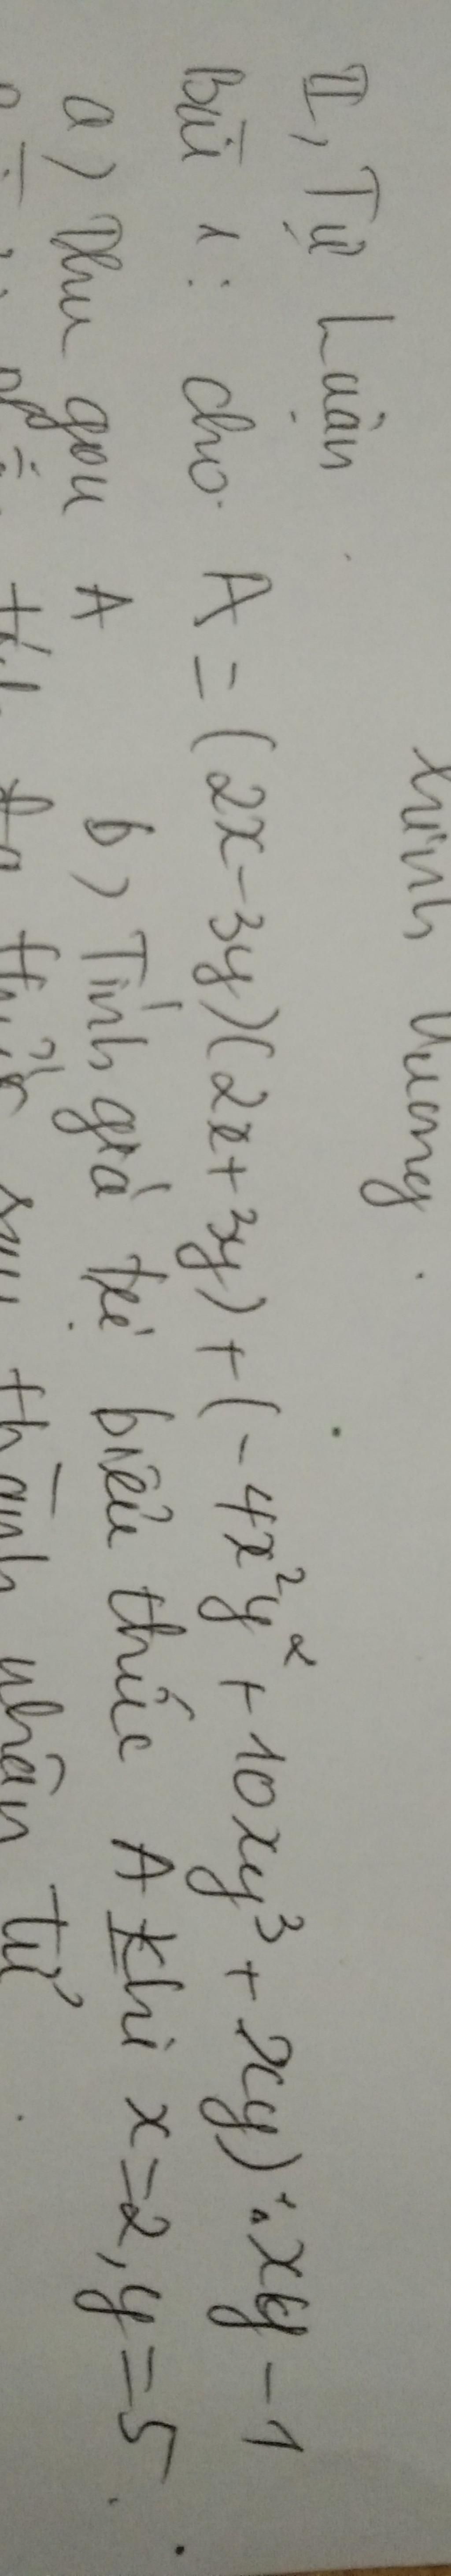 Hình vuông.
II, Tự Luận
Bài 1: cho A = (2x-3y)(2x+3y) + (-4x²y² + 10xy³ + xy) : xy - 1
a) Thu gọn A b) Tính giá trị biểu thức A khi x=2, y=5.
tích đa thức sau thành nhân tử